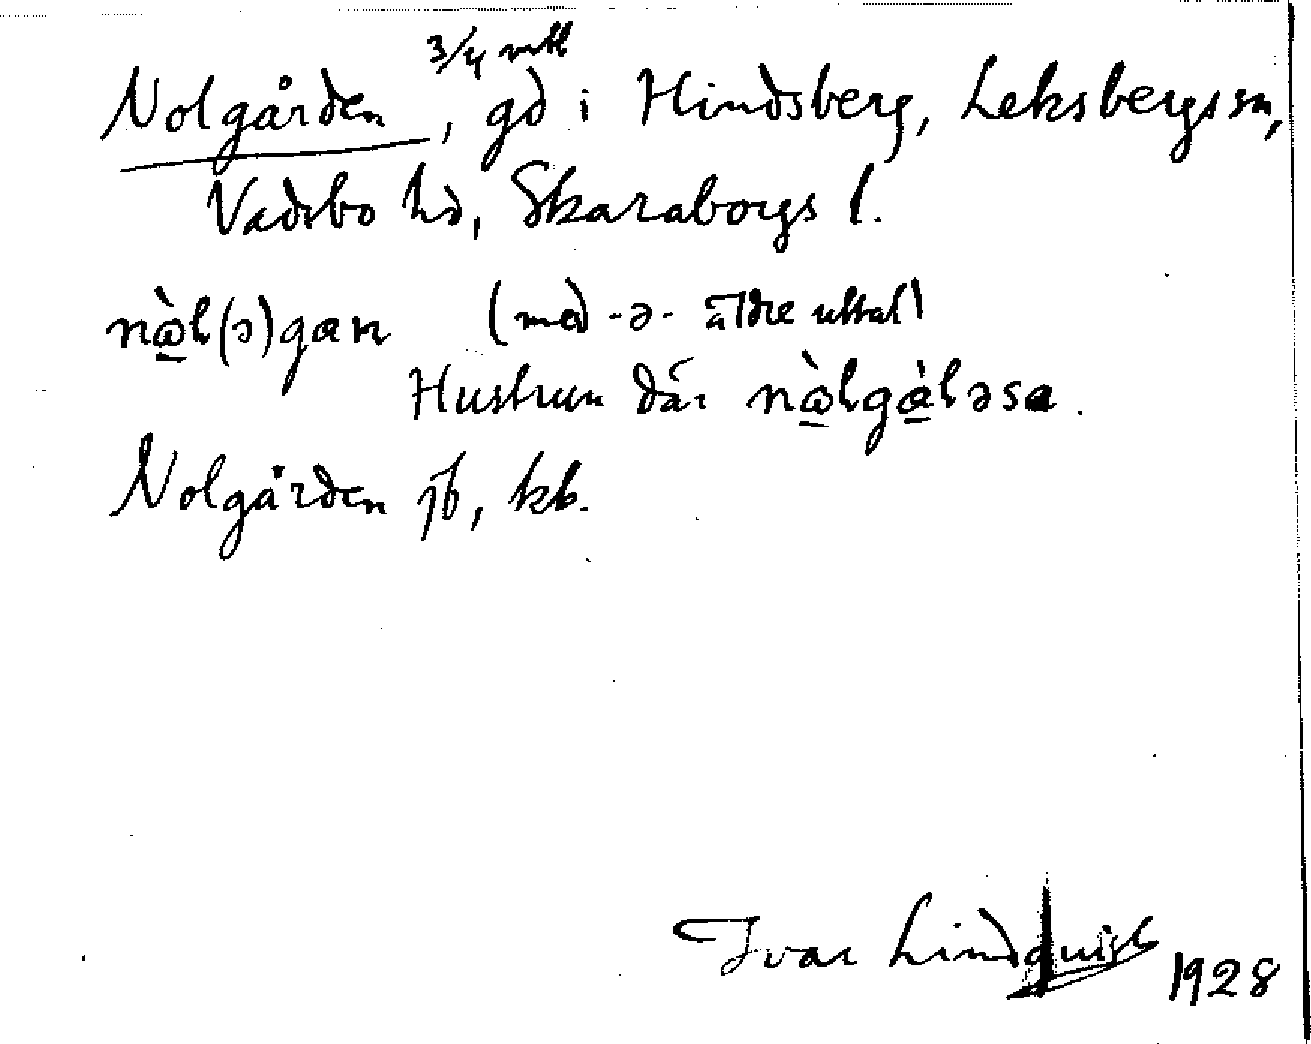 3/4 mtl
Nolgården, gd i Hindsberg, Leksbergs sn,
Vadsbo hd, Skaraborgs l.
nὼ̲l(ə)gan (med -ə- äldre uttal)
Hustrun där nὼ̲lgὰ̲ləsa.
Nolgården jb, kb.
Ivar Lindquist 1928